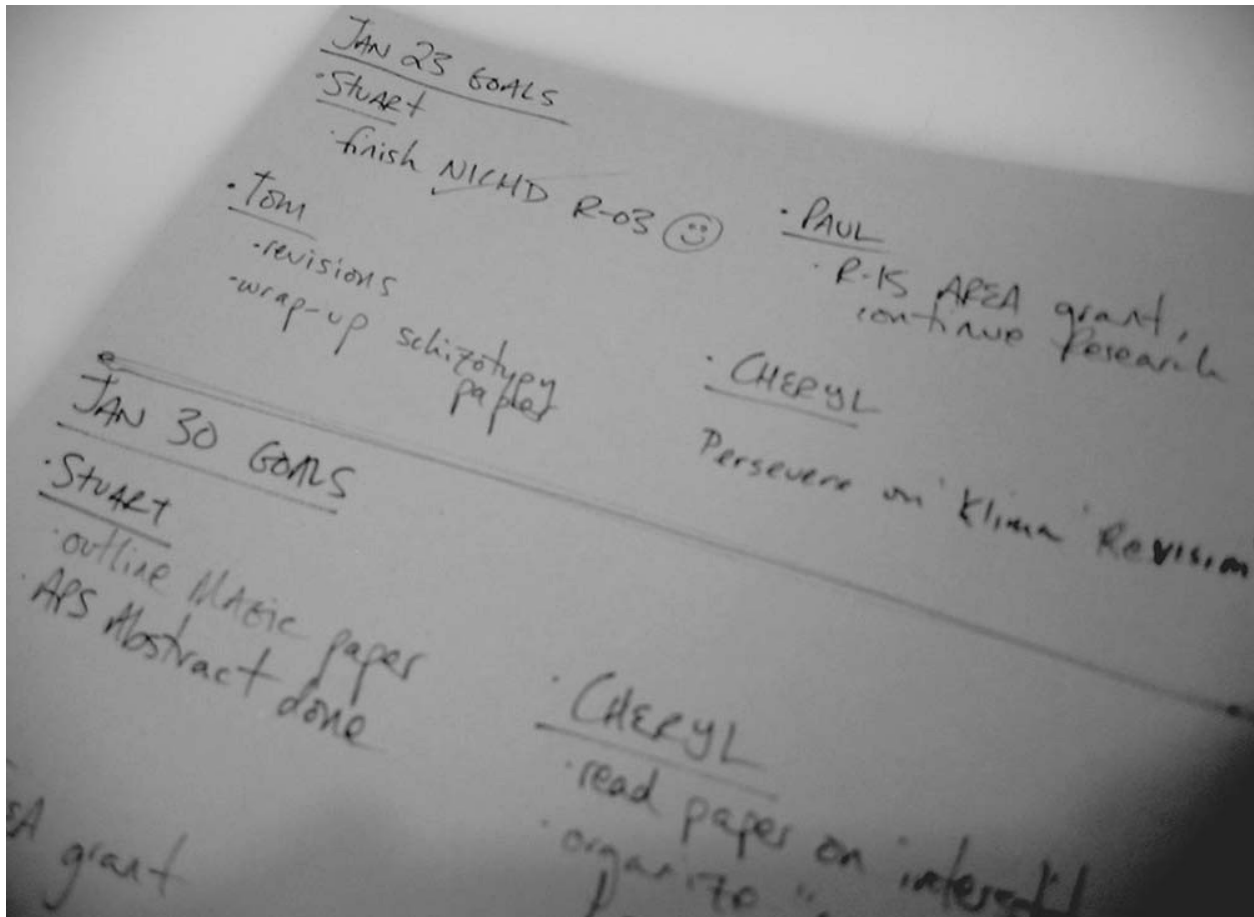 JAN 23 GOALS
· STUART
· finish NICHD R-03
· TOM
· revisions
· wrap-up schizotypy
paper
· PAUL
· R-15 AREA grant,
continue Research
· CHERYL
Persevere on 'Klima' Revision
JAN 30 GOALS
· STUART
· outline MAGIC paper
· APS Abstract done
grant
· CHERYL
· read paper on
· organize